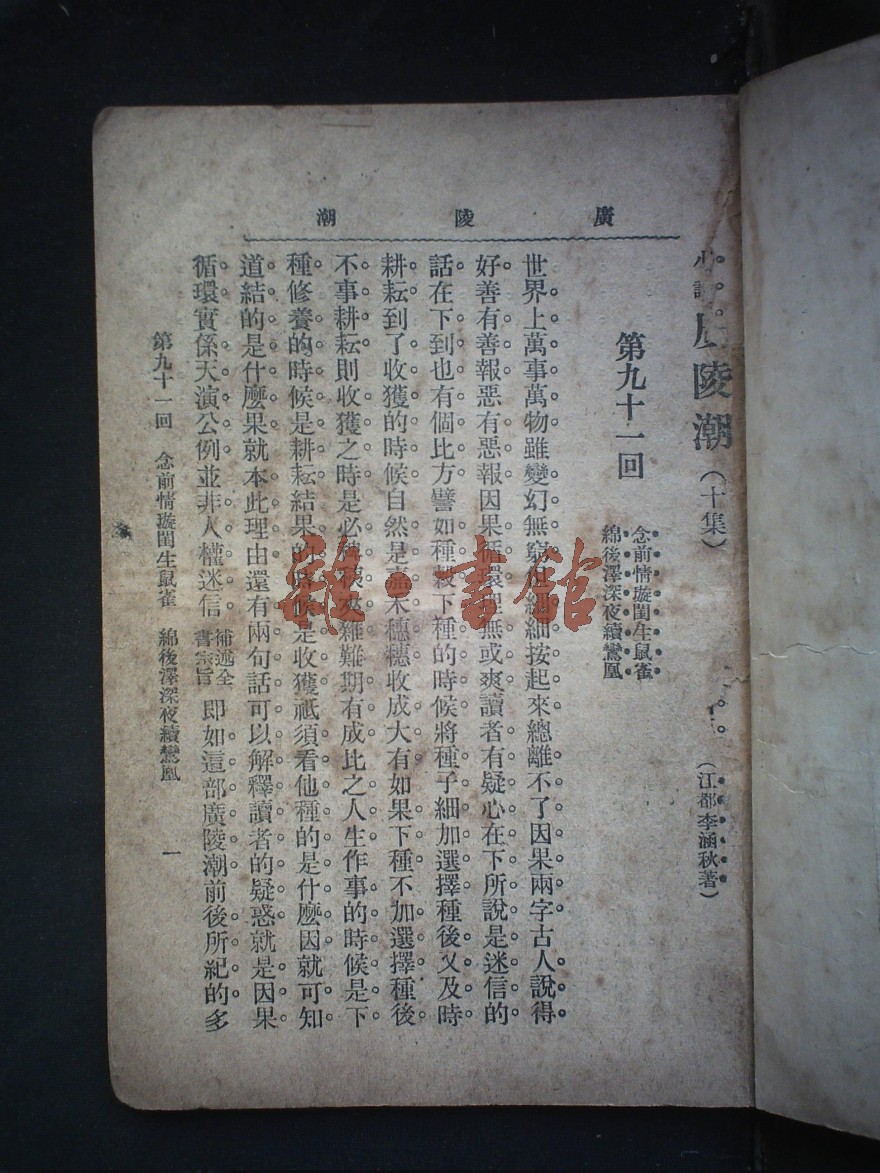 廣陵潮
小說廣陵潮（十集）
（江都李涵秋著）
第九十一回
念前情璇閨生鼠雀
綿後澤深夜續鸞凰
世界上萬事萬物雖變幻無窮但細細按起來總離不了因果兩字古人說得
好善有善報惡有惡報因果循環理無或爽讀者有疑心在下所說是迷信的
話在下到也有個比方譬如種穀下種的時候將種子細加選擇種後又及時
耕耘到了收獲的時候自然是嘉禾穗穗收成大有如果下種不加選擇種後
不事耕耘則收獲之時是必難期有成比之人生作事的時候是下
種修養的時候是耕耘結果的時候是收獲祗須看他種的是什麽因就可知
道結的是什麽果就本此理由還有兩句話可以解釋讀者的疑惑就是因果
循環實係天演公例並非人權迷信補述全書宗旨即如這部廣陵潮前後所紀的多
第九十一回 念前情璇閨生鼠雀 綿後澤深夜續鸞凰 一
雜·書館